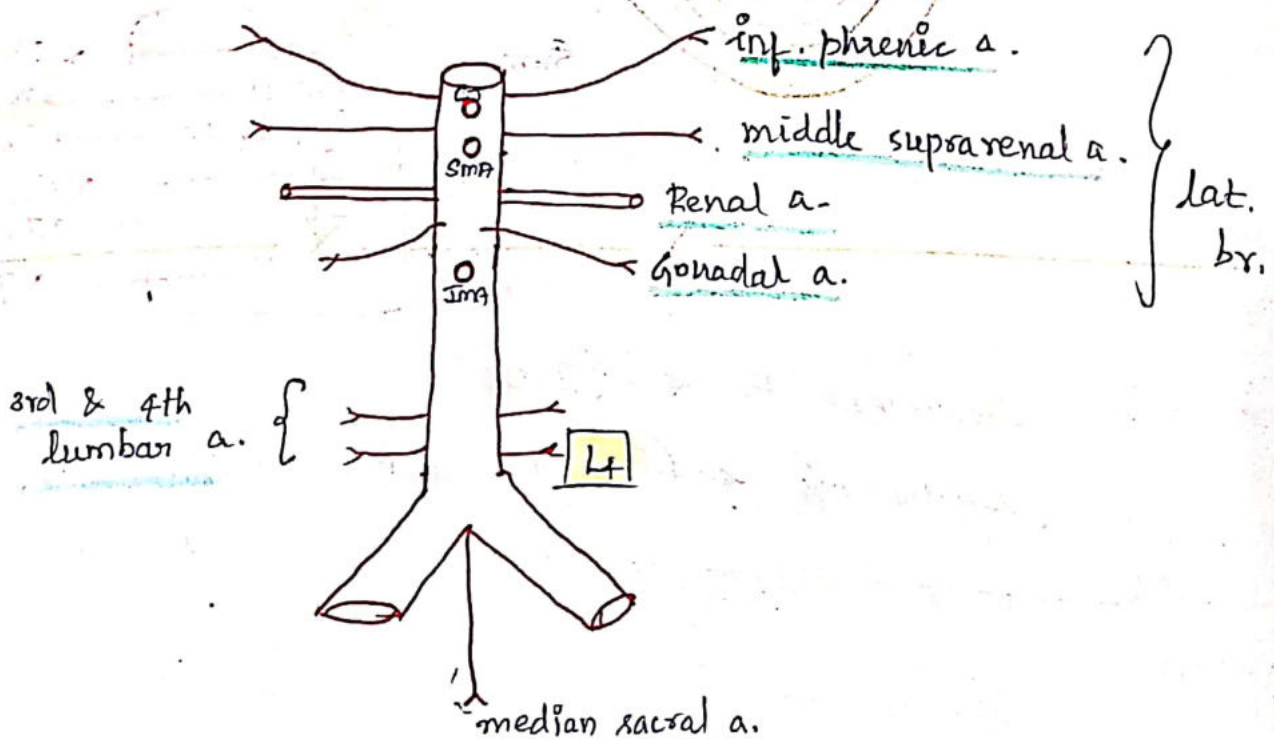 inf. phrenic a.
middle suprarenal a.
SMA
Renal a.
lat.
br.
Gonadal a.
IMA
3rd & 4th
lumbar a.
L4
median sacral a.